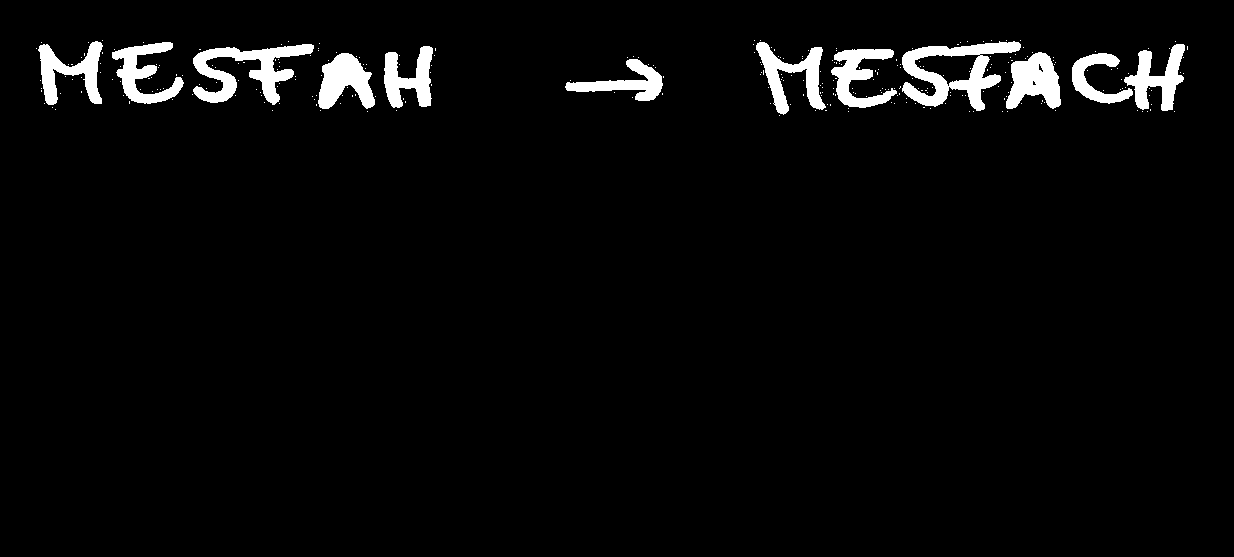 MESFAH → MESFACH